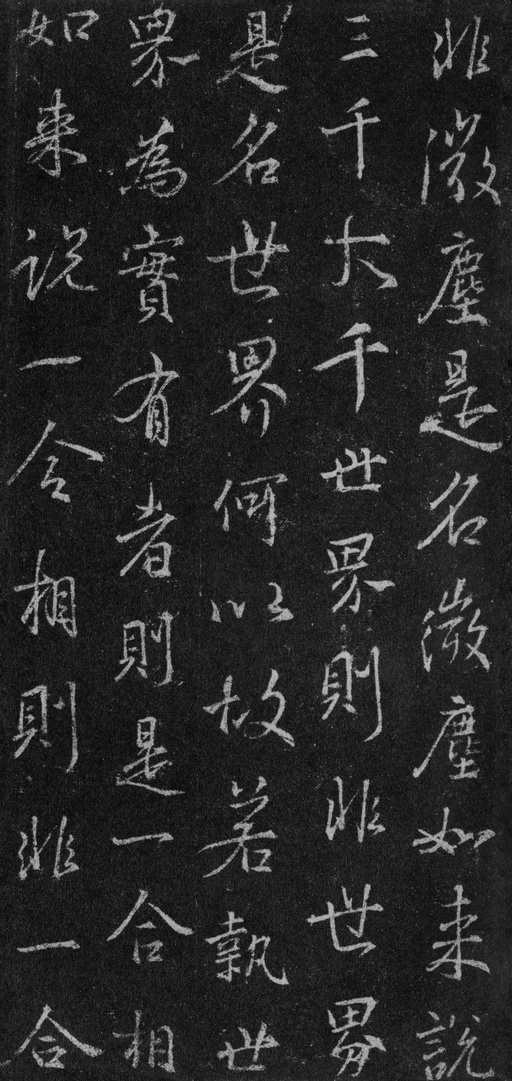 非微塵是名微塵如来說
三千大千世界則非世界
是名世界何以故若執世
界為實有者則是一合相
如来説一合相則非一合